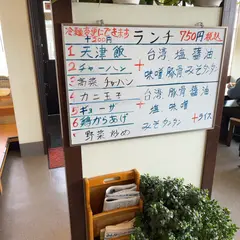 冷麺変更にできます
+200円
ランチ 750円税込
1 天津飯
2 チャーハン
3 高菜チャーハン
+
台湾 塩 醤油
味噌 豚骨 みそタンタン
4 カニ玉子
5 ギョーザ
6 鶏からあげ
野菜炒め
+
台湾 豚骨 醤油
塩 味噌
みそタンタン
+ライス